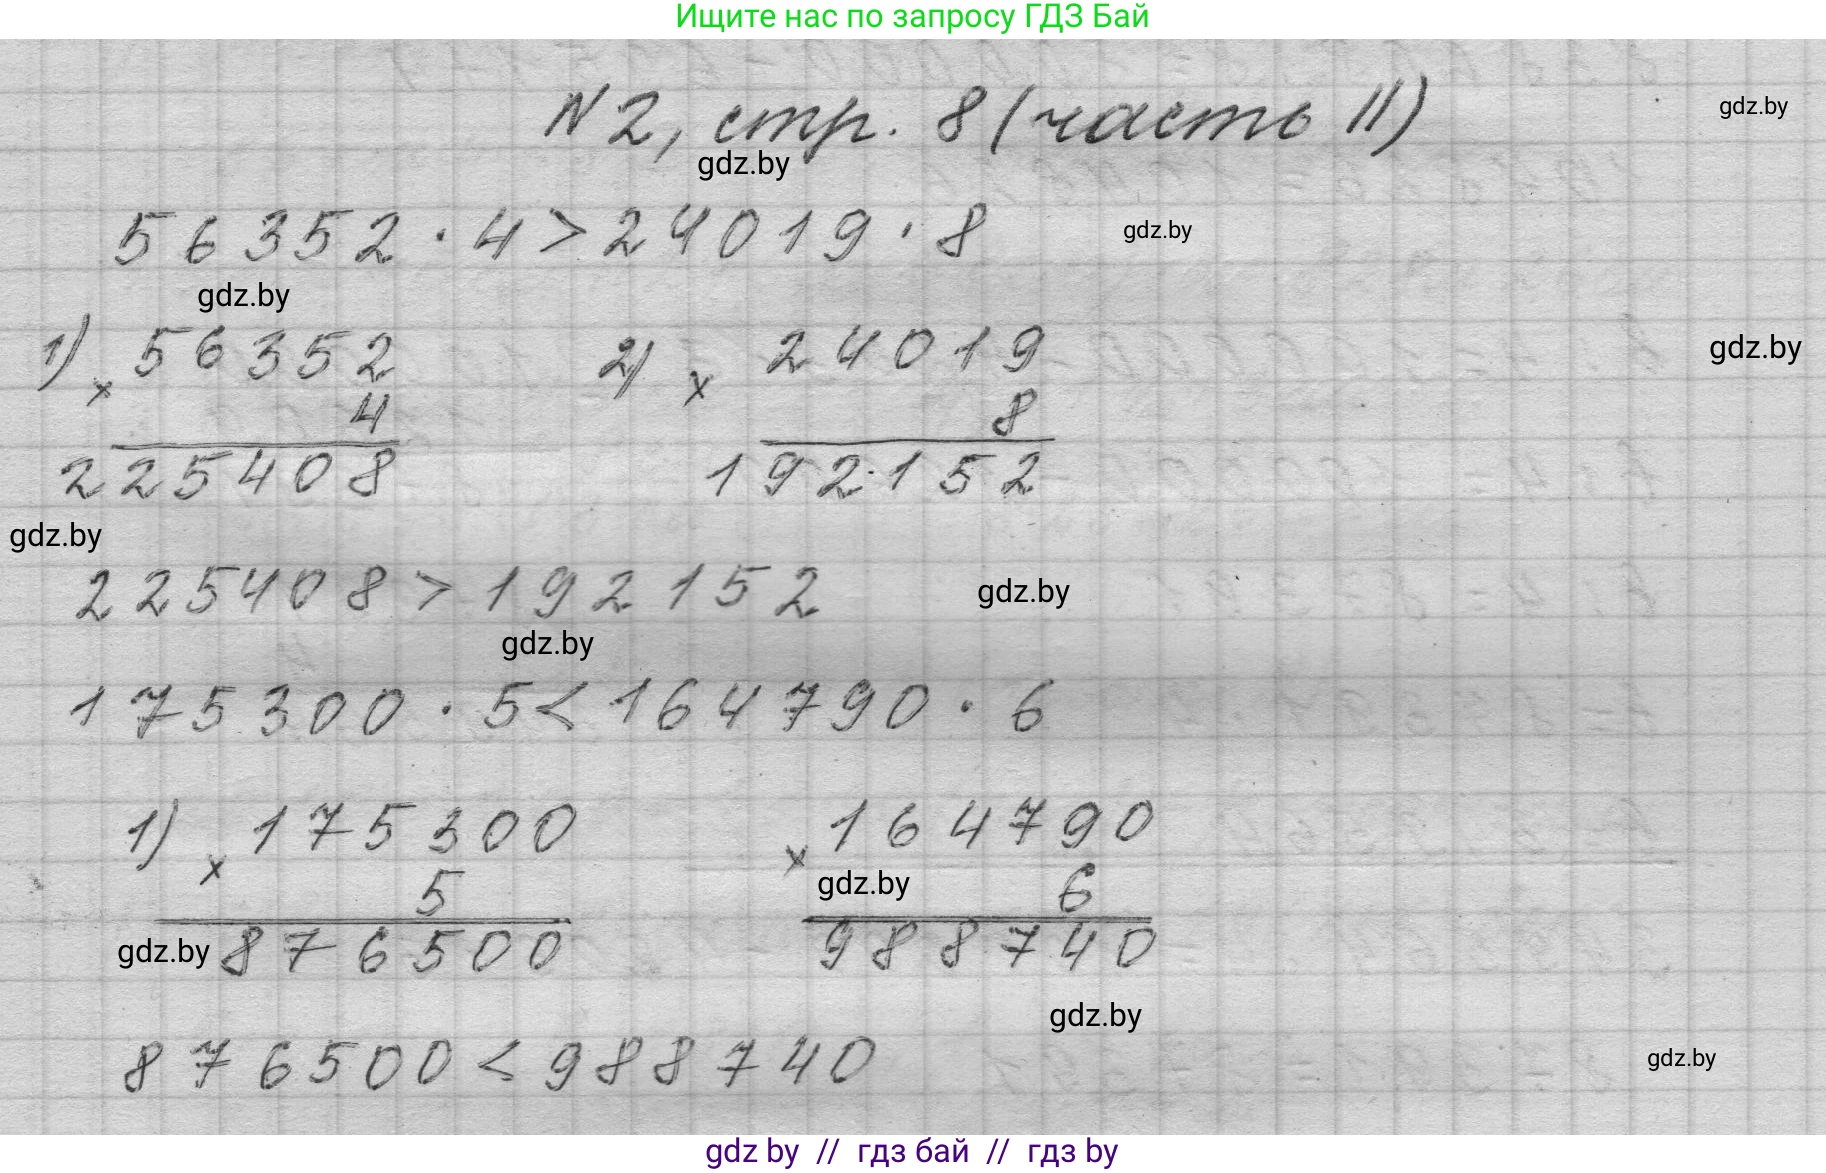 Ищите нас по запросу ГДЗ Бай
N2, стр. 8 (часть II)
gdz.by
gdz.by
56352 · 4 > 24019 · 8
gdz.by
gdz.by
1) × 56352
4
225408
2) × 24019
8
192152
gdz.by
gdz.by
225408 > 192152
gdz.by
gdz.by
175300 · 5 < 164790 · 6
1) × 175300
5
876500
gdz.by
× 164790
gdz.by
6
988740
gdz.by
876500 < 988740
gdz.by
gdz by // гдз бай // гдз by